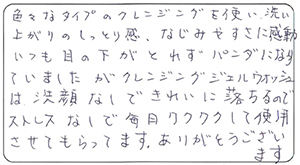 色々なタイプのクレンジングを使い、洗い
上がりのしっとり感、なじみやすさに感動
いつも目の下がとれずパンダになり
ていましたがクレンジングジェルウォッシュ
は、洗顔なしできれいに落ちるので
ストレスなしで毎日ワクワクして使用
させてもらってます。ありがとうござい
ます